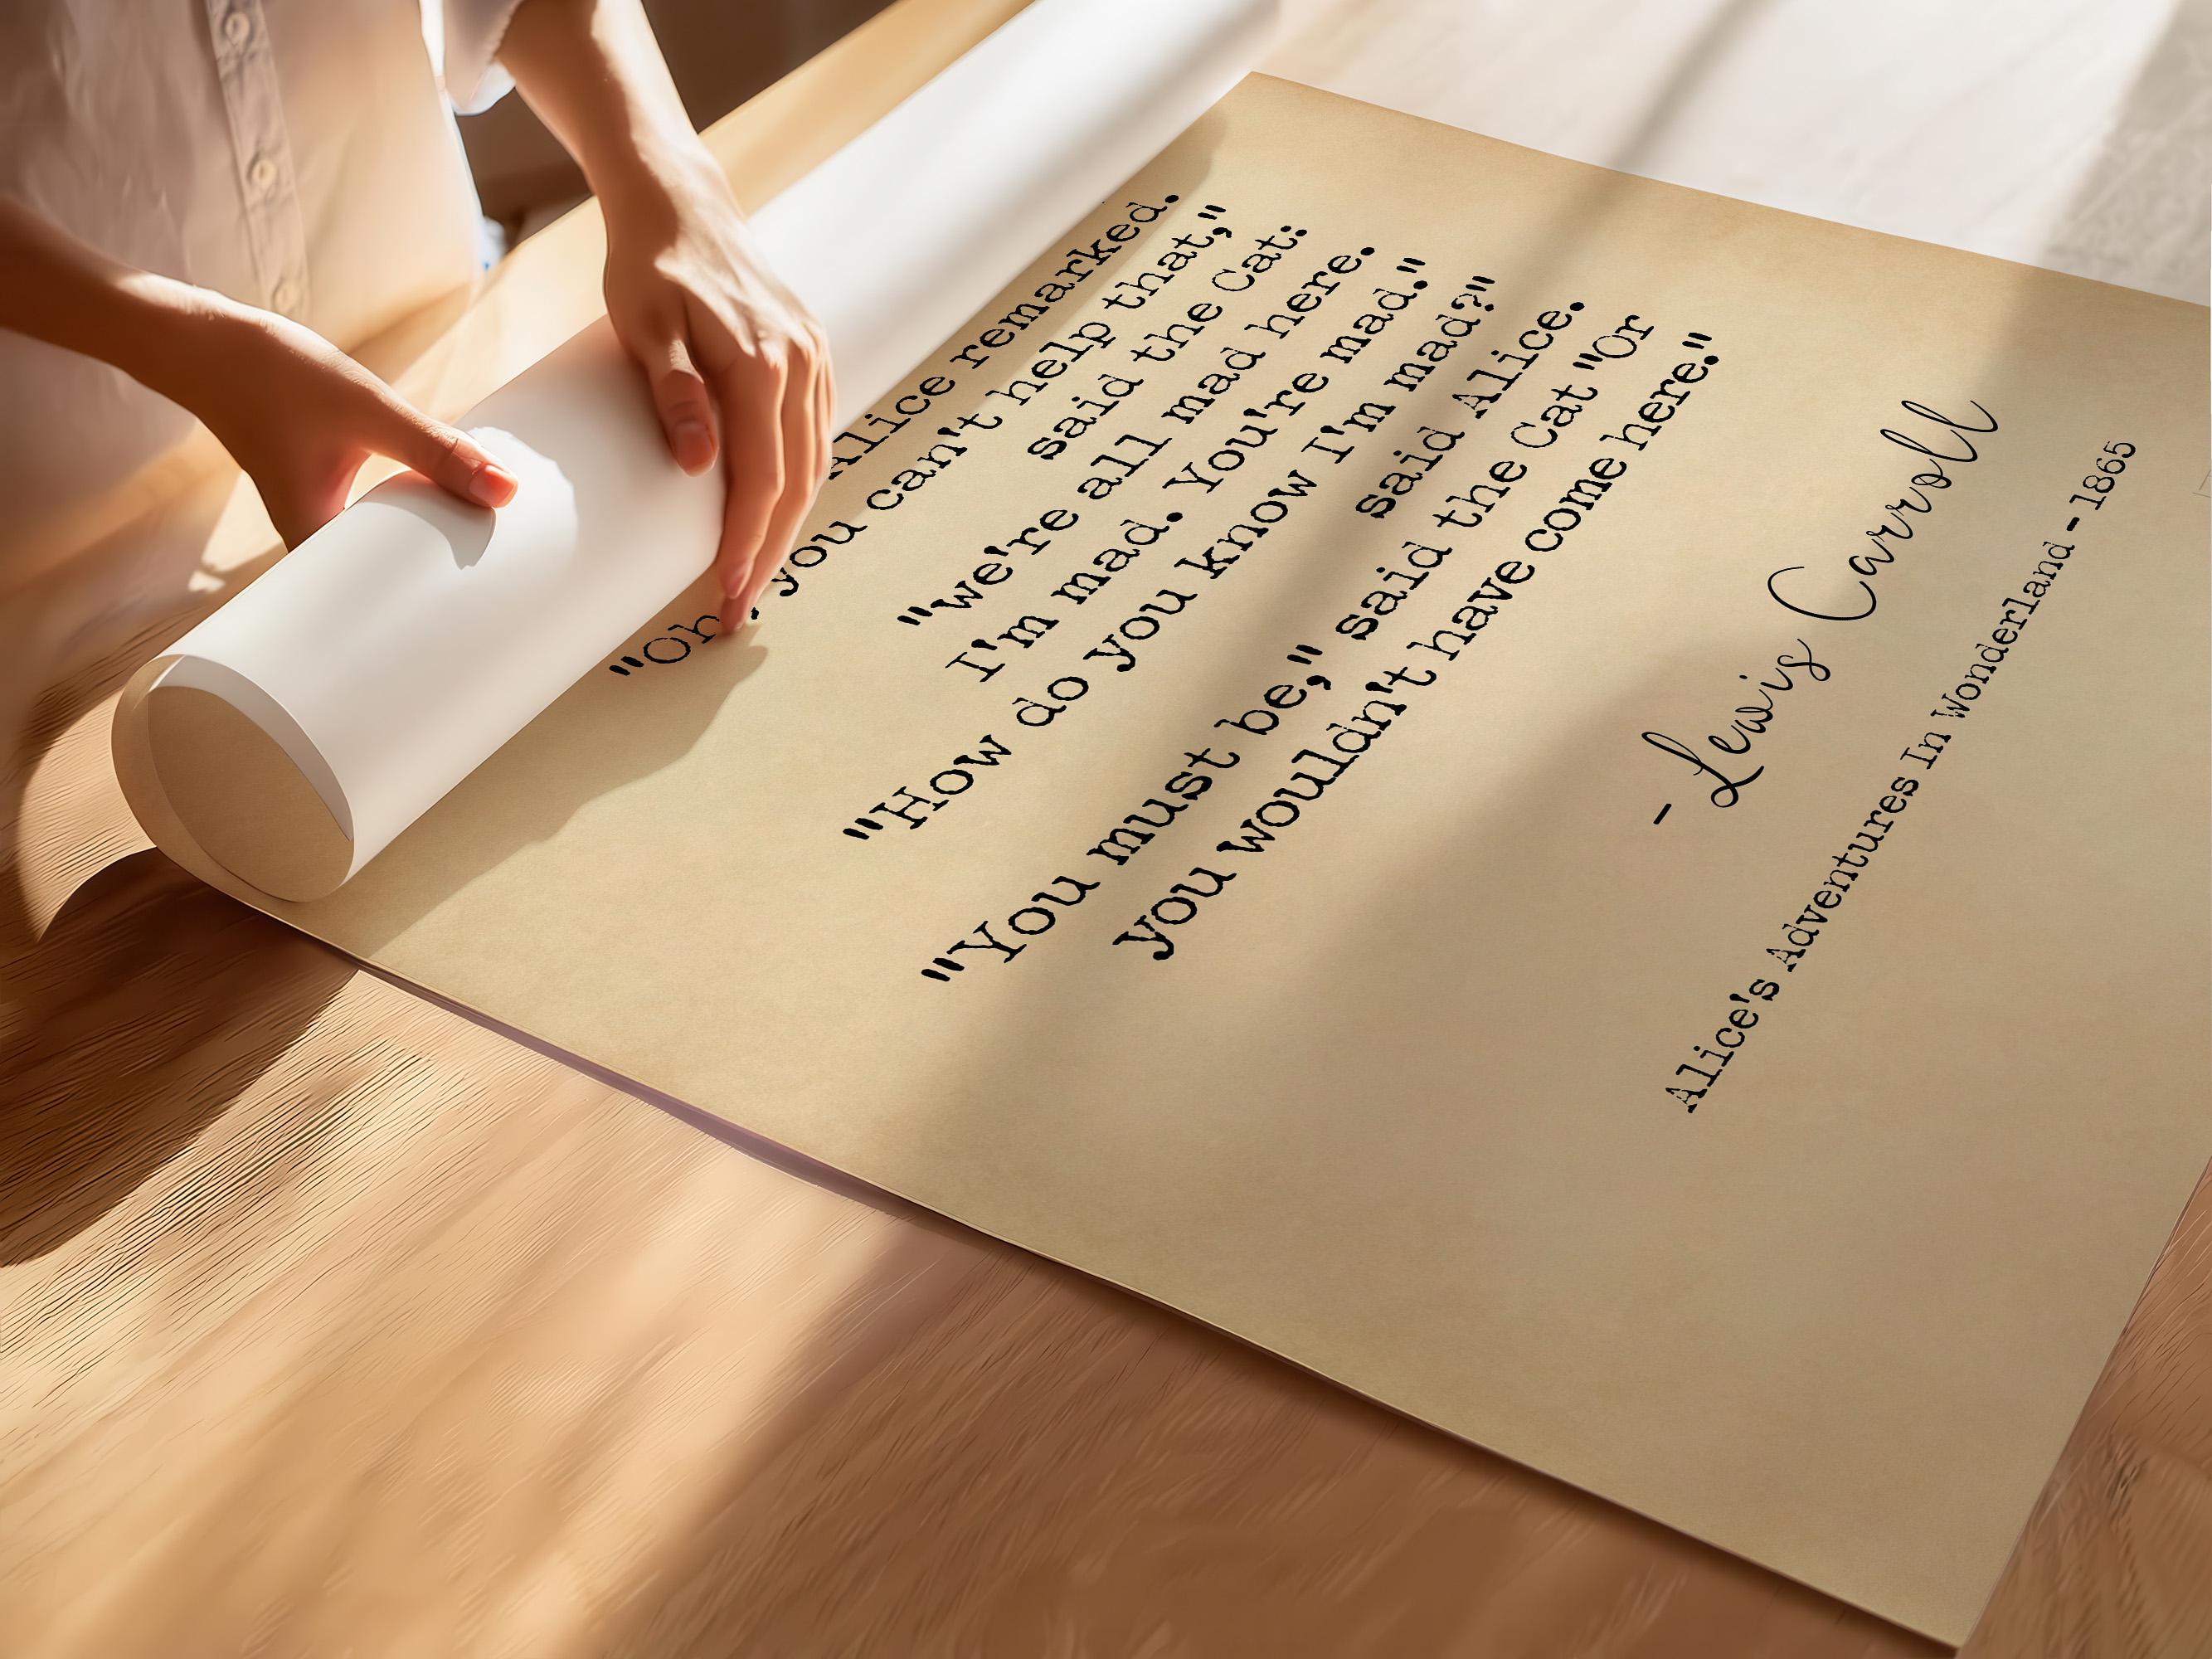 Alice remarked.
"Oh, you can't help that,"
said the Cat:
"we're all mad here.
I'm mad. You're mad."
"How do you know I'm mad?"
said Alice.
"You must be," said the Cat "Or
you wouldn't have come here."
- Lewis Carroll
Alice's Adventures In Wonderland - 1865